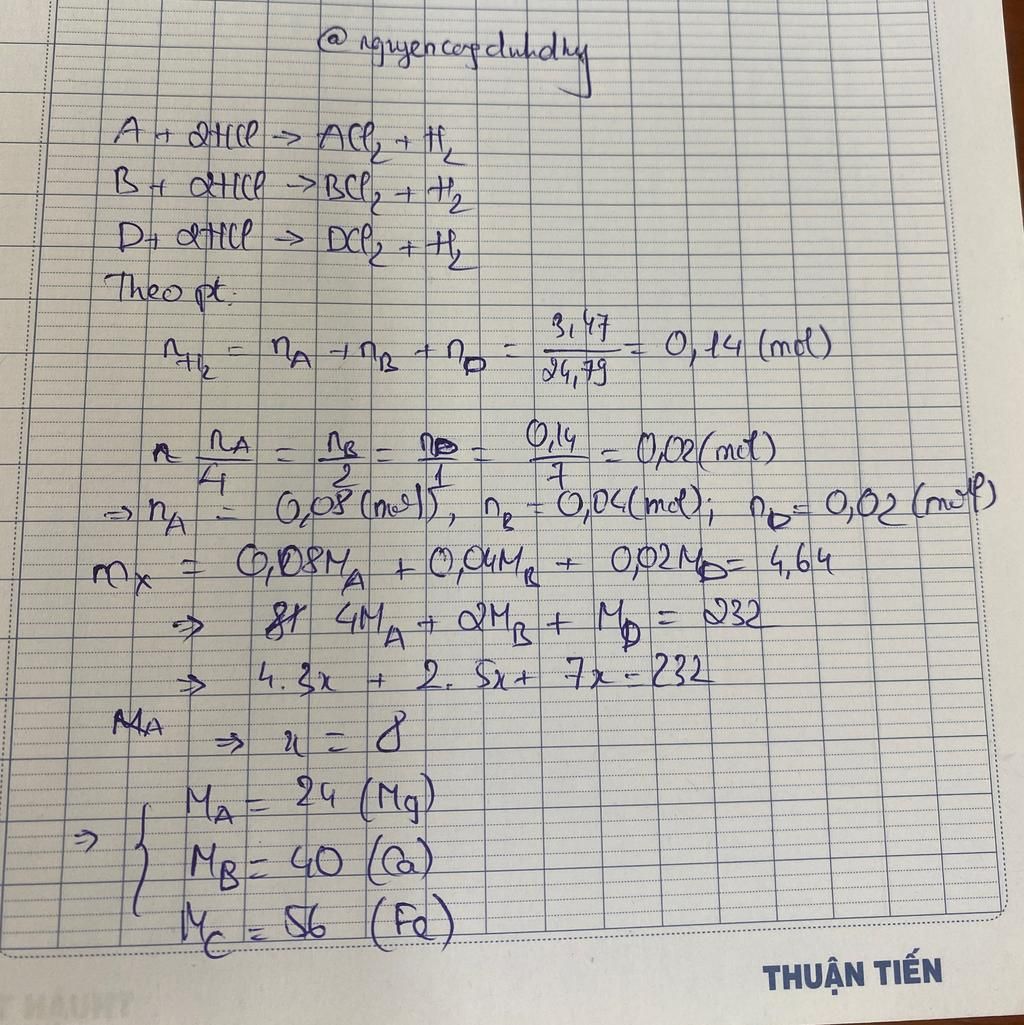 A + 2HCl → ACl₂ + H₂
B + 2HCl → BCl₂ + H₂
D + 2HCl → DCl₂ + H₂
Theo pt:
n_H₂ = n_A + n_B + n_D = 3,47/24,79 = 0,14 (mol)
n_A/4 = n_B/2 = n_D/1 = 0,14/7 = 0,02 (mol)
⇒ n_A = 0,08 (mol), n_B = 0,04 (mol); n_D = 0,02 (mol)
m_X = 0,08M_A + 0,04M_B + 0,02M_D = 4,64
⇒ 4M_A + 2M_B + M_D = 232
⇒ 4.3x + 2.5x + 7x = 232
M_A ⇒ x = 8
⇒ { M_A = 24 (Mg)
M_B = 40 (Ca)
M_C = 56 (Fe)
THUẬN TIẾN